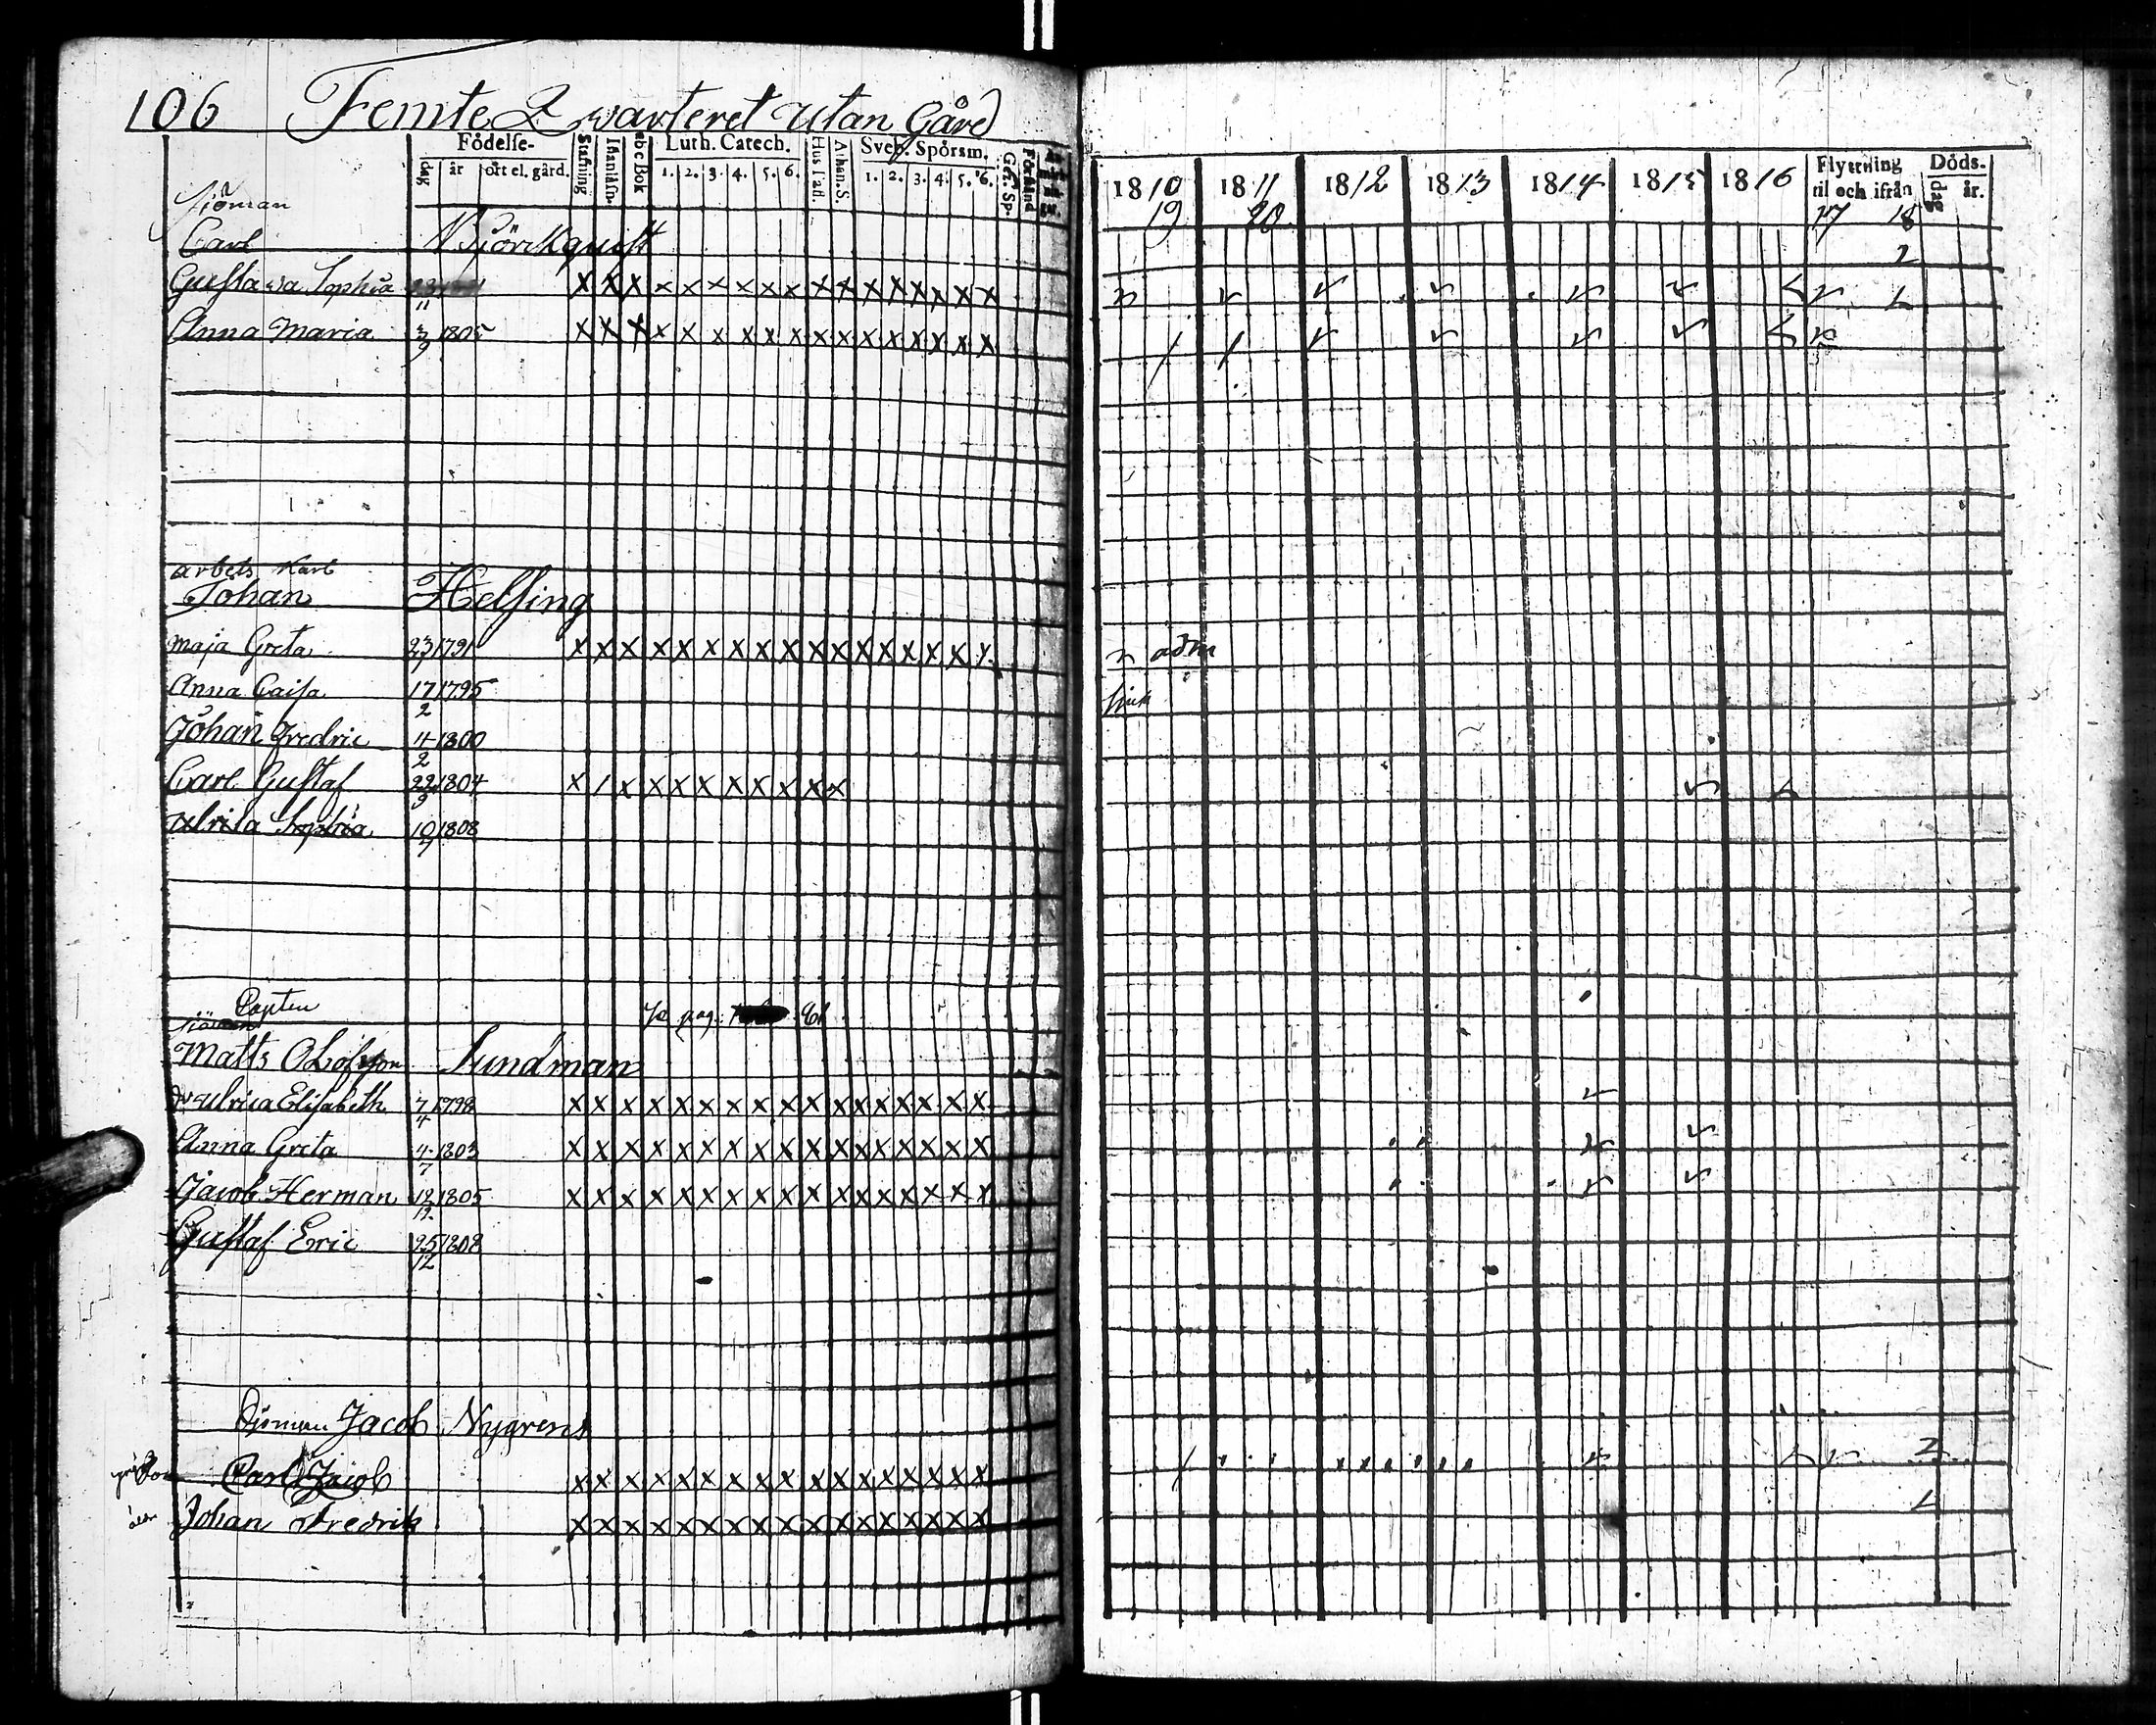 106 Femte Qwarteret utan Gård
Födelse-
dag år ort el. gård.
Stafning
Abc Bok
Luth. Catech.
1. 2. 3. 4. 5. 6.
Hus Tafl.
Athan. S.
Sveb. Spörsm.
1. 2. 3. 4. 5. 6.
Förstånd
1810 1811 1812 1813 1814 1815 1816
Flyttning til och ifrån
Döds-
dag år.
19 20 17 18
Sjöman
Carl Björckquist
2
Gustava Sophia 11 x x x x x x x x x x x x x x x x x
Anna Maria 3/9 1805 x x x x x x x x x x x x x x x x x
arbets Karl
Johan Helsing
Maja Greta 23 1791 x x x x x x x x x x x x x x x x x n adm
Anna Caisa 17/2 1795 sjuk
Johan Fredric 4/2 1800
Carl Gustaf 22/9 1804 x / x x x x x x x x x
Ulrica Sophia 10 1808
Capten
Sjöman
Matts Olofsson Sundman
Ulrica Elisabeth 7/4 1798 x x x x x x x x x x x x x x x x x
Anna Greta 4/7 1803 x x x x x x x x x x x x x x x x x
Jacob Herman 18/12 1805 x x x x x x x x x x x x x x x x x
Gustaf Eric 25/12 1808
Sjöman Jacob Nygrens
Carl Jacob x x x x x x x x x x x x x x x x x 2
Johan Fredrik x x x x x x x x x x x x x x x x x